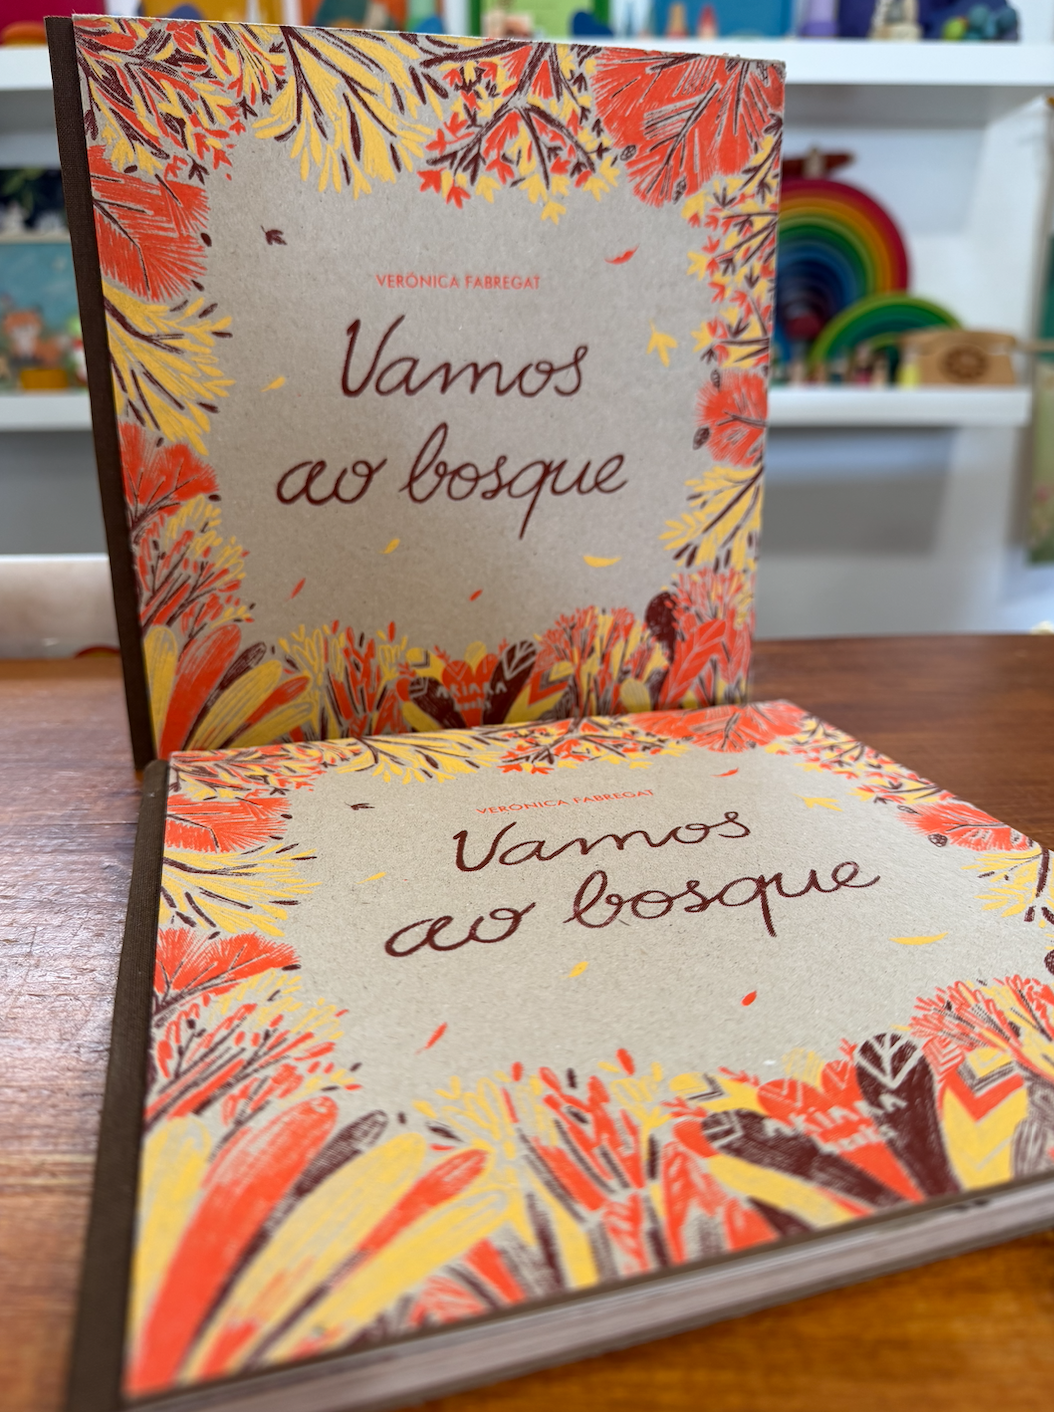 VERÓNICA FABREGAT
Vamos
ao bosque
ARIARA
VERÓNICA FABREGAT
Vamos
ao bosque
ARIARA